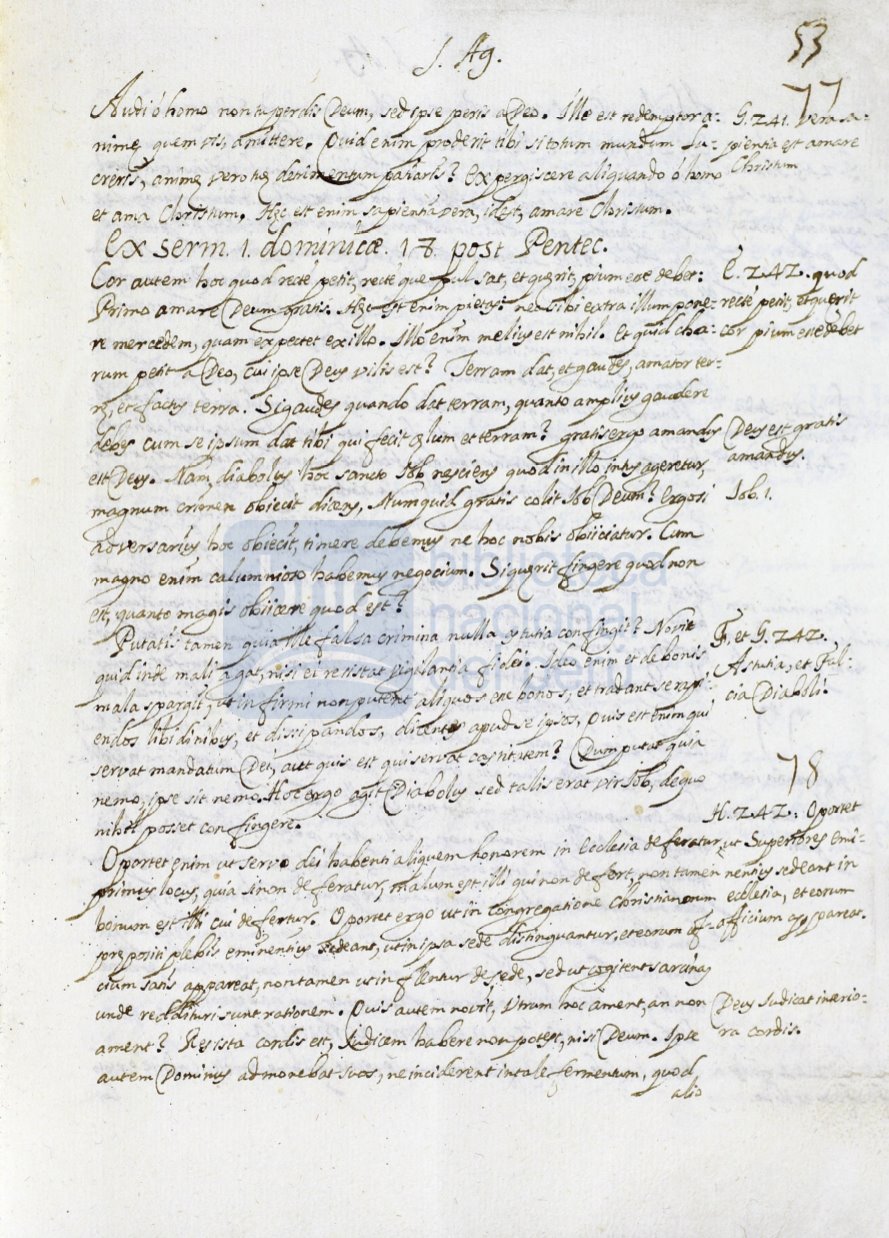 S. Ag.
53
77
Audi ó homo non tu perdis Deum, sed ipse peris a Deo. Ille est redemptor a-
nimę quem vis, amittere. Quid enim proderit tibi si totum mundum lu-
creris, animę vero tuę detrimentum patiaris? Expergiscere aliquando ó homo
et ama Christum. Hęc est enim sapientia vera, idest, amare Christum.
G. 241. Vera sa-
pientia est amare
Christum
Ex serm. 1. dominicæ. 18. post Pentec.
Cor autem hoc quod recté petit, recté que pulsat, et quęrit, pium esse debet:
Primo amare Deum gratis. Hęc est enim pietas: ne sibi extra illum pone-
re mercedem, quam expectet ex illo. Illo enim melius est nihil. Et quid cha-
rum petit a Deo, cui ipse Deus vilis est? Terram dat, et gaudes, amator ter-
rę, et factus terra. Si gaudes quando dat terram, quanto amplius gaudere
debes cum se ipsum dat tibi qui fecit cęlum et terram? gratis ergo amandus
est Deus. Nam diabolus hoc sancto Iob nesciens quod in illo intus ageretur,
magnum crimen obiecit dicens, Numquid gratis colit Iob Deum? Ergo si
adversarius hoc obiecit, timere debemus ne hoc nobis obiiciatur. Cum
magno enim calumnioso habemus negocium. Si quęrit fingere quod non
est, quanto magis obiicere quod est?
E. 242. quod
recté petit, et quęrit
cor pium esse debet
Deus est gratis
amandus.
Iob. 1.
Putatis tamen quia ille falsa crimina nulla astutia confingit? Novit
quid inde mali agat, nisi ei resistat vigilantia fidei. Ideo enim et de bonis
mala spargit, ut infirmi non putent aliquos esse bonos, et tradant se rapi-
endos libidinibus, et dissipandos, dicentes apud se ipsos, Quis est enim qui
servat mandatum Dei, aut quis est qui servat castitatem? Dum putat quia
nemo, ipse sit nemo. Hoc ergo agit Diabolus sed talis erat vir Iob, de quo
nihil posset confingere.
F. et G. 242.
Astutia, et Fal-
cia Diaboli.
78
Oportet enim ut servo dei habenti aliquem honorem in Ecclesia deferatur
primus locus, quia si non deferatur, malum est illi qui non defert, non tamen
bonum est illi cui defertur. Oportet ergo ut in congregatione Christianorum
prępositi plebis eminentius sedeant, ut in ipsa sede distinguantur, et eorum offi-
cium satis appareat, non tamen ut inflentur de sede, sed ut cogitent sarcinam
unde reddituri sunt rationem. Quis autem novit, utrum hoc ament, an non
ament? Res ista cordis est, Iudicem habere non potest, nisi Deum. Ipse
autem Dominus admonebat suos, ne inciderent in tale fermentum, quod
alio
H. 242. Oportet
ut Superiores emi-
nentius sedeant in
ecclesia, et eorum
officium appareat.
Deus Iudicat interio-
ra cordis.
biblioteca
nacional
del perú